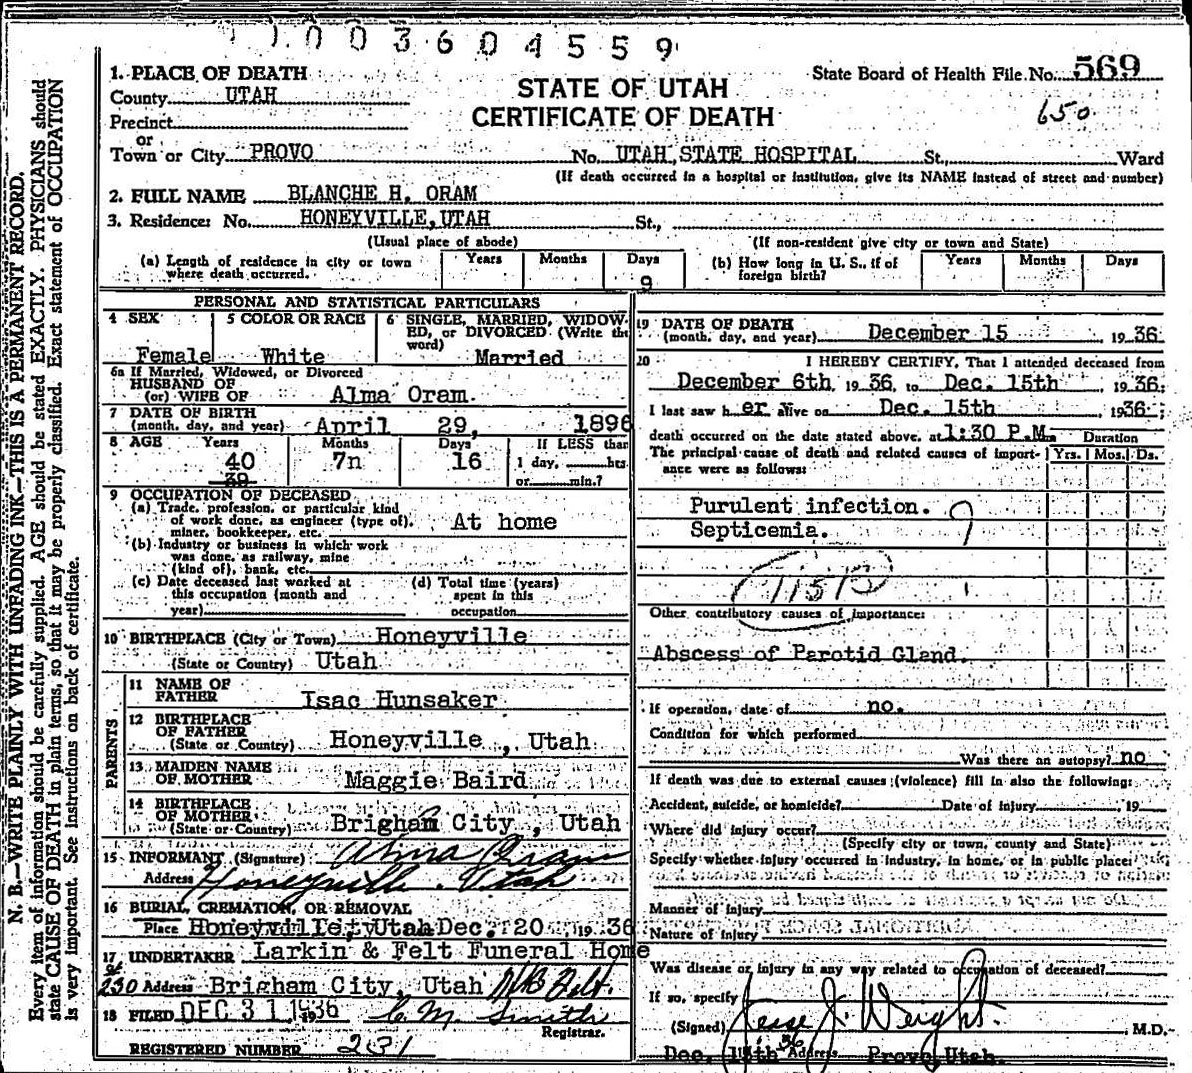 1003604559
State Board of Health File No. 569
650
STATE OF UTAH
CERTIFICATE OF DEATH
1. PLACE OF DEATH
County UTAH
Precinct
or
Town or City PROVO No. UTAH STATE HOSPITAL St., Ward
(If death occurred in a hospital or institution, give its NAME instead of street and number)
2. FULL NAME BLANCHE H. ORAM
3. Residence: No. HONEYVILLE, UTAH St.,
(Usual place of abode) (If non-resident give city or town and State)
(a) Length of residence in city or town where death occurred. Years Months Days 9
(b) How long in U. S., if of foreign birth? Years Months Days
PERSONAL AND STATISTICAL PARTICULARS
4 SEX Female
5 COLOR OR RACE White
6 SINGLE, MARRIED, WIDOWED, or DIVORCED (Write the word) Married
6a If Married, Widowed, or Divorced
HUSBAND OF
(or) WIFE OF Alma Oram.
7 DATE OF BIRTH
(month, day, and year) April 29, 1896
8 AGE Years Months Days If LESS than
40 7n 16 1 day, hrs.
39 or min.?
9 OCCUPATION OF DECEASED
(a) Trade, profession, or particular kind
of work done, as engineer (type of), At home
miner, bookkeeper, etc.
(b) Industry or business in which work
was done, as railway, mine
(kind of), bank, etc.
(c) Date deceased last worked at
this occupation (month and
year)
(d) Total time (years)
spent in this
occupation
10 BIRTHPLACE (City or Town) Honeyville
(State or Country) Utah
PARENTS
11 NAME OF
FATHER Isac Hunsaker
12 BIRTHPLACE
OF FATHER
(State or Country) Honeyville, Utah
13 MAIDEN NAME
OF MOTHER Maggie Baird
14 BIRTHPLACE
OF MOTHER
(State or Country) Brigham City, Utah
15 INFORMANT (Signature) Alma Oram
Address Honeyville, Utah
16 BURIAL, CREMATION, OR REMOVAL
Place Honeyville, Utah Dec. 20 1936
17 UNDERTAKER Larkin & Felt Funeral Home
230 Address Brigham City, Utah
18 FILED DEC 31 1936 C. M. Smith
Registrar.
REGISTERED NUMBER 231
19 DATE OF DEATH
(month, day, and year) December 15 1936
20 I HEREBY CERTIFY, That I attended deceased from
December 6th 1936, to Dec. 15th, 1936.
I last saw her alive on Dec. 15th 1936;
death occurred on the date stated above, at 1:30 P.M. Duration
The principal cause of death and related causes of importance were as follows: Yrs. Mos. Ds.
Purulent infection.
Septicemia.
Other contributory causes of importance:
Abscess of Parotid Gland.
If operation, date of no.
Condition for which performed
Was there an autopsy? no
If death was due to external causes (violence) fill in also the following:
Accident, suicide, or homicide? Date of injury 19
Where did injury occur?
(Specify city or town, county and State)
Specify whether injury occurred in industry, in home, or in public place:
Manner of injury
Nature of injury
Was disease or injury in any way related to occupation of deceased?
If so, specify
(Signed) Jesse J. Weight. M.D.
Dec. 15th 36 Address Provo, Utah.
N. B.—WRITE PLAINLY WITH UNFADING INK—THIS IS A PERMANENT RECORD.
Every item of information should be carefully supplied. AGE should be stated EXACTLY. PHYSICIANS should
state CAUSE OF DEATH in plain terms, so that it may be properly classified. Exact statement of OCCUPATION
is very important. See instructions on back of certificate.